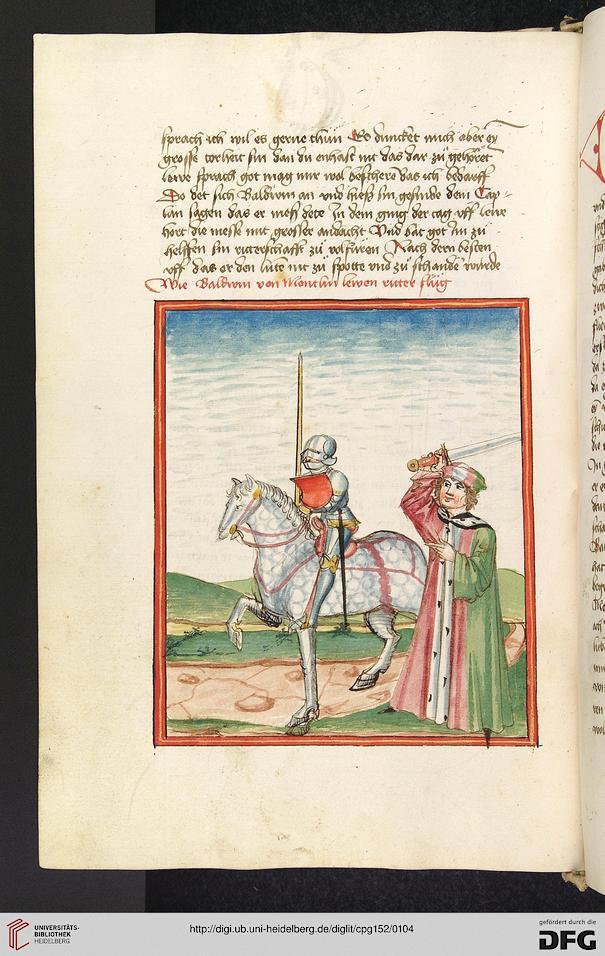 sprach ich wil es gerne thun Es duncket mich aber ey
grosse torheit sin dan du enhast nit das dar zů gehöret
lewe sprach got mag mir wol beschern das ich bedarff
Do det sich Baldwin an vnd hieß sin gesinde dem Cap-
lan sagen das er meß dete In dem ging der tag vff lewe
hort die messe mit grosser andacht Vnd bat got im zů
helffen sin ritterschafft zů volfuren Nach dem besten
vff das er den luten nit zů spotte vnd zů schande wurde
Wie Baldwin von Monclin lewen ritter slůg
UNIVERSITÄTS-
BIBLIOTHEK
HEIDELBERG
http://digi.ub.uni-heidelberg.de/diglit/cpg152/0104
gefördert durch die
DFG